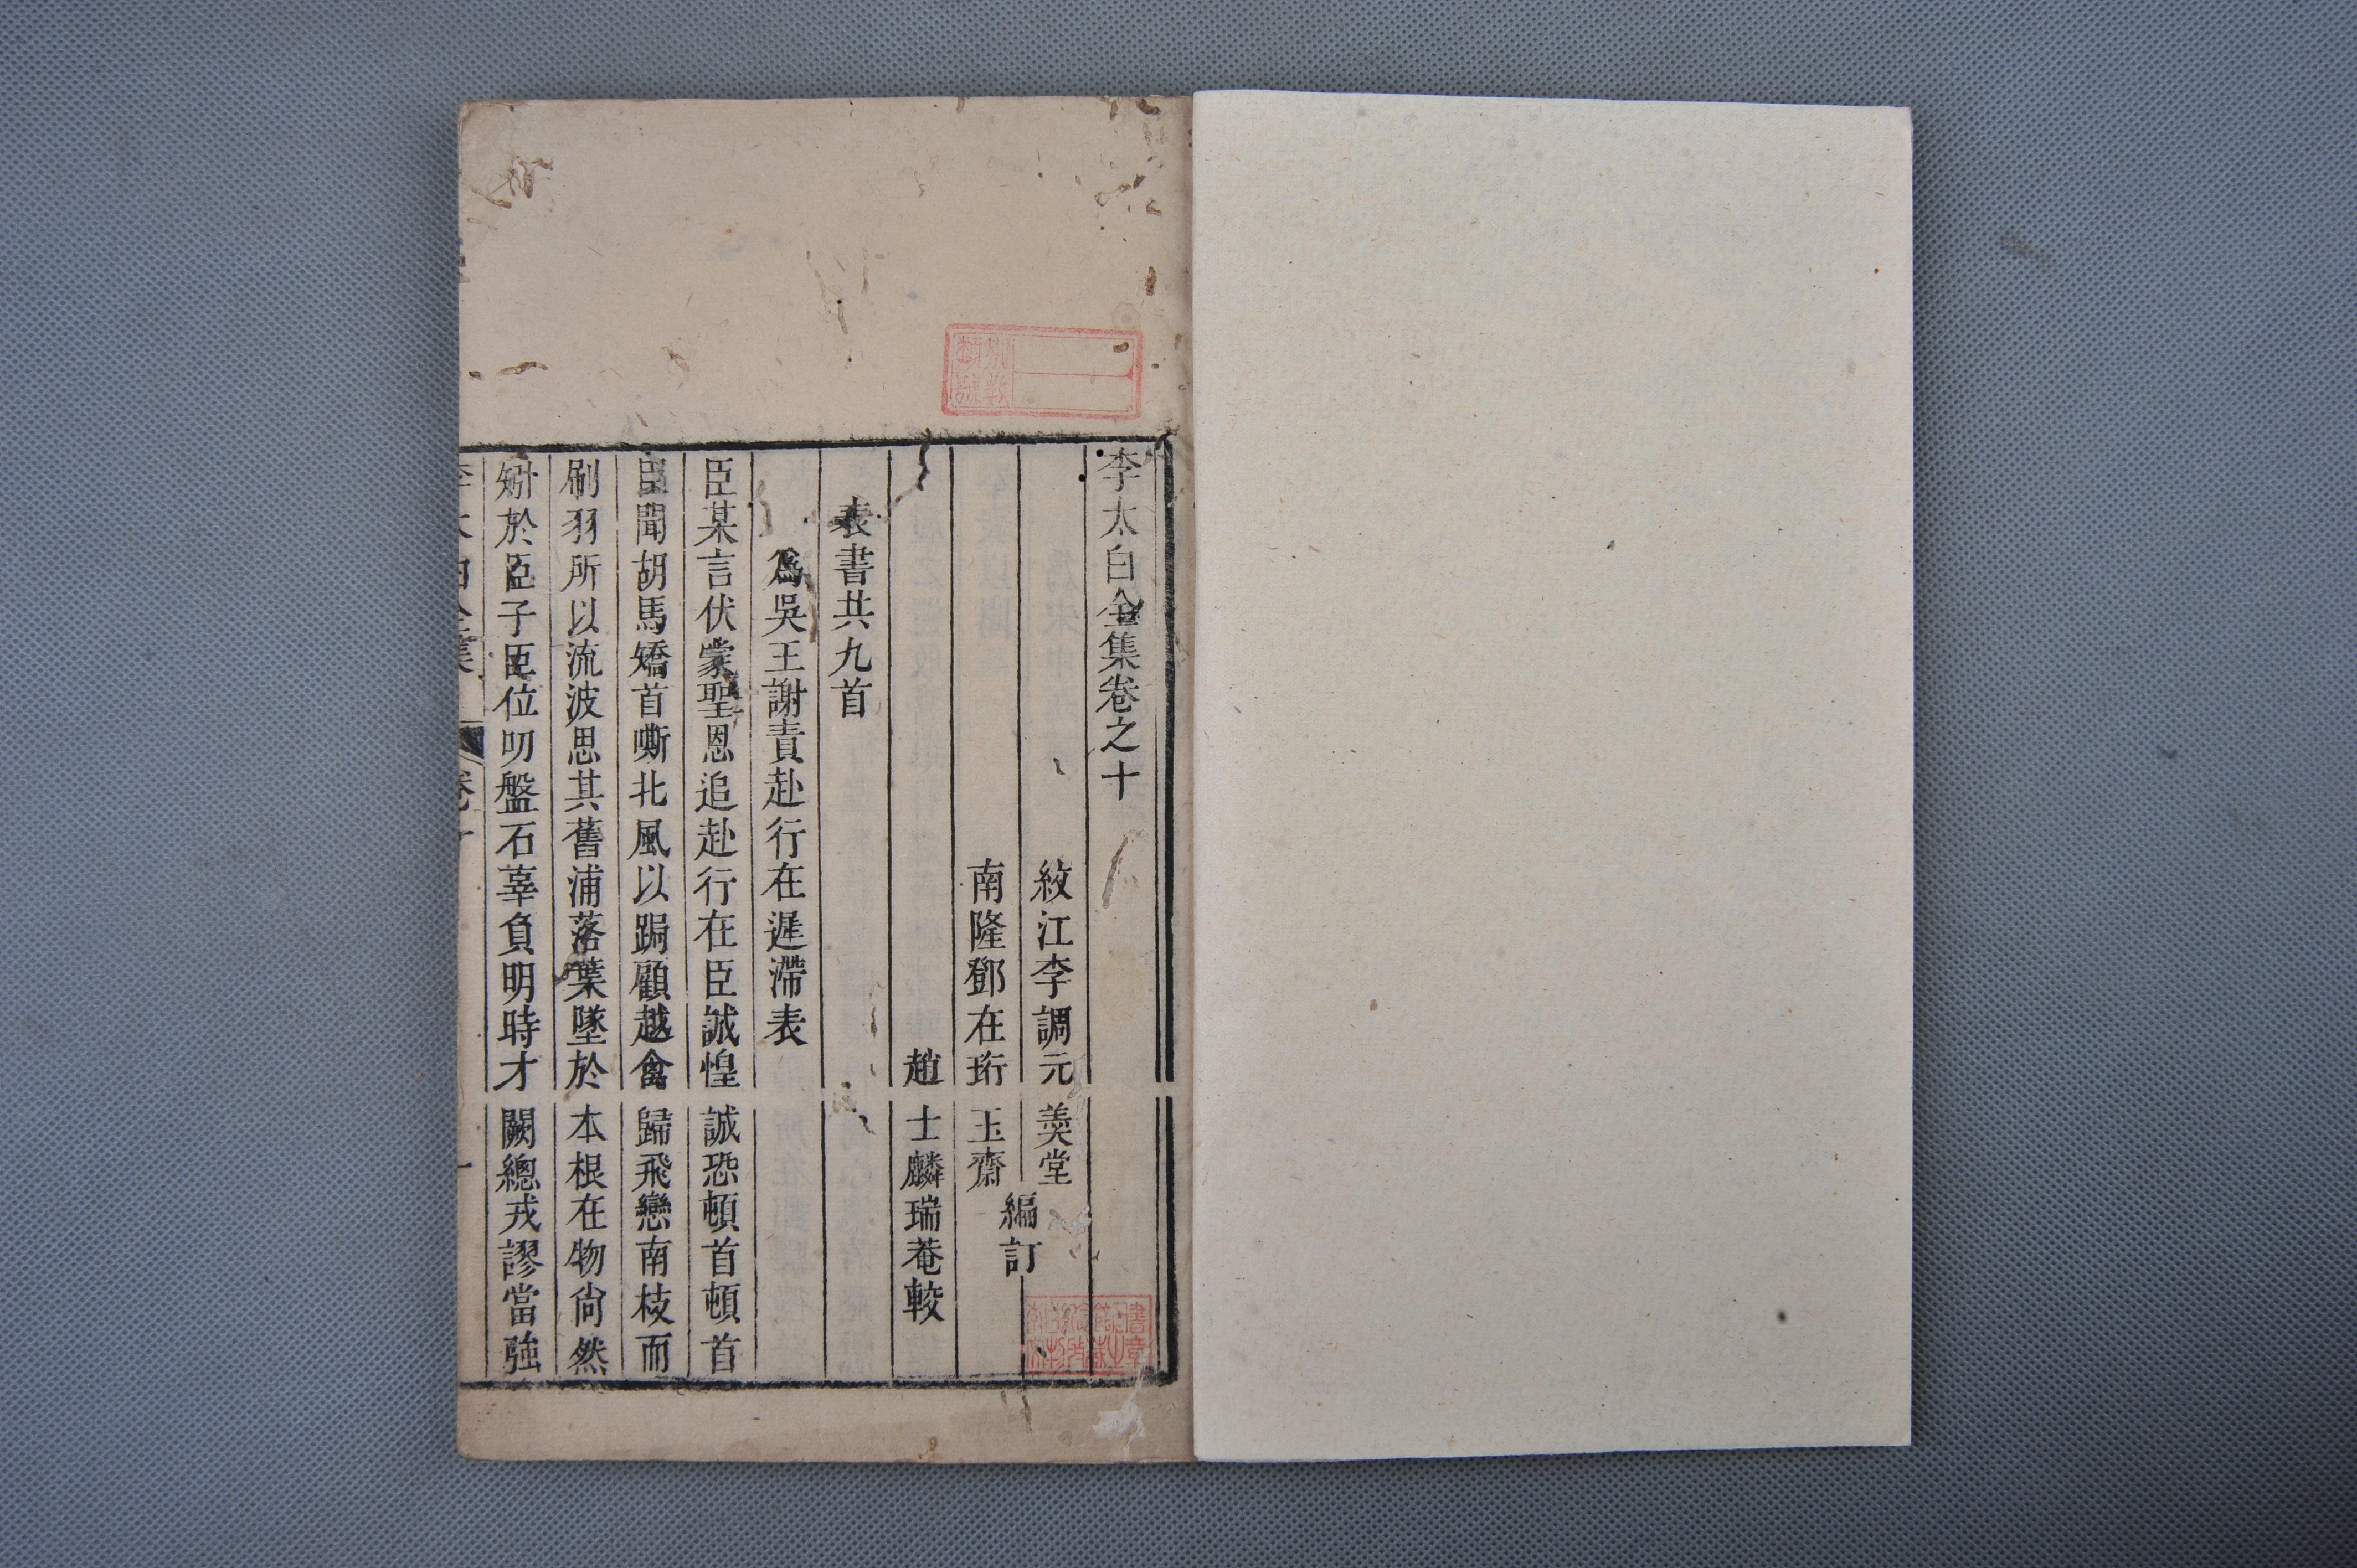 李太白全集卷之十
紋江李調元 羹堂
編訂
南隆鄧在珩 玉齋
趙 士麟瑞菴較
表書共九首
為吳王謝責赴行在遲滯表
臣某言伏蒙聖恩追赴行在臣誠惶誠恐頓首頓首
臣聞胡馬矯首嘶北風以跼顧越禽歸飛戀南枝而
刷羽所以流波思其舊浦落葉墜於本根在物尙然
矧於臣子臣位叨盤石辜負明時才闕總戎謬當強
李太白全集 卷十 一